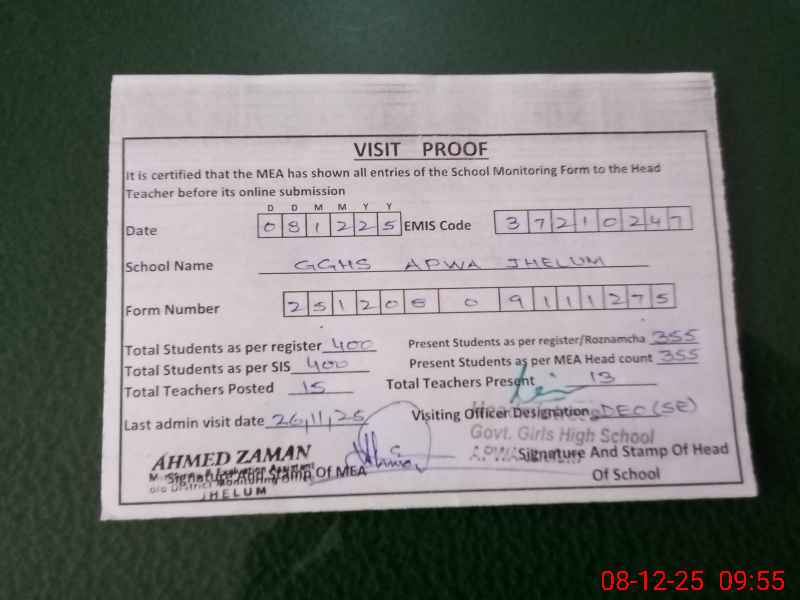 VISIT PROOF
It is certified that the MEA has shown all entries of the School Monitoring Form to the Head
Teacher before its online submission
D D M M Y Y
Date 081225 EMIS Code 37210247
School Name GGHS APWA JHELUM
Form Number 251208 0 9111275
Total Students as per register 400 Present Students as per register/Roznamcha 355
Total Students as per SIS 400 Present Students as per MEA Head count 355
Total Teachers Posted 15 Total Teachers Present 13
Last admin visit date 26,11,25 Visiting Officer Designation DEO(SE)
Govt. Girls High School
AHMED ZAMAN APWA Signature And Stamp Of Head
Signature And Stamp Of MEA Of School
JHELUM
08-12-25 09:55